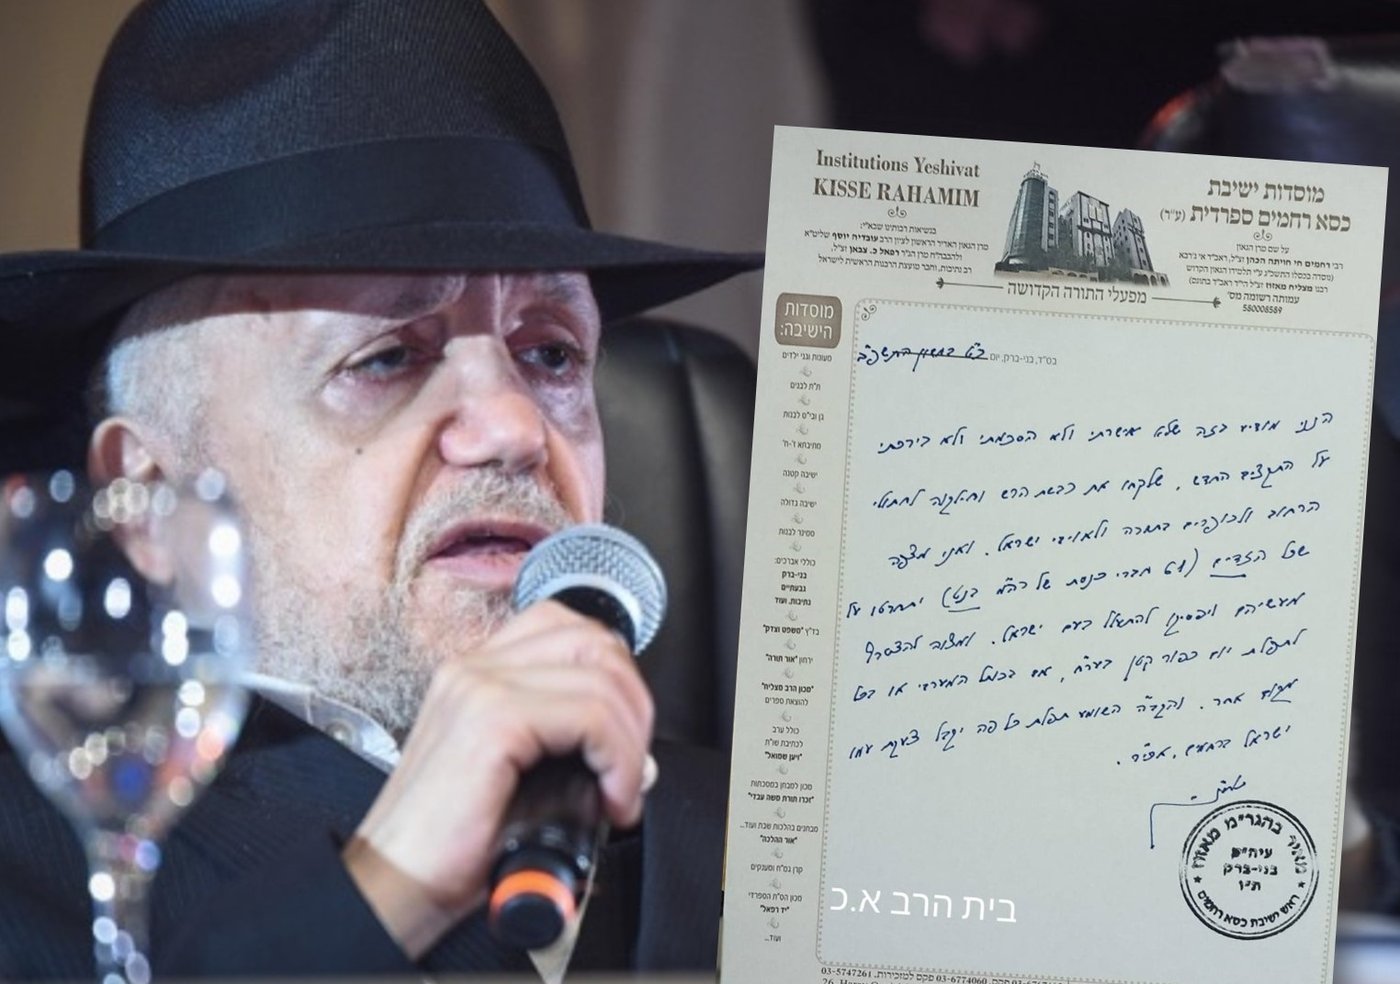 Institutions Yeshivat
KISSE RAHAMIM
בנשיאות רבותינו שבא"י:
מרן הגאון האדיר הראשון לציון הרב עובדיה יוסף שליט"א
ולהבבה"ח מרן הג"ר רפאל כ. צבאן זצ"ל,
רב נתיבות, וחבר מועצת הרבנות הראשית לישראל
מוסדות ישיבת
כסא רחמים ספרדית (ע"ר)
על שם מרן הגאון
רבי רחמים חי חויתה הכהן זצ"ל, ראב"ד אי ג'רבא
(נוסדה בכסלו התשכ"ג ע"י תלמידו הגאון הקדוש
רבנו מצליח מאזוז זצ"ל הי"ד ראב"ד בתונס)
עמותה רשומה מס'
580008589
מפעלי התורה הקדושה
מוסדות
הישיבה:
מעונות וגני ילדים
ת"ת לבנים
גן ובי"ס לבנות
מתיבתא ז'-ח'
ישיבה קטנה
ישיבה גדולה
סמינר לבנות
כוללי אברכים:
בני-ברק
גבעתיים
נתיבות, ועוד
בד"ץ "משפט וצדק"
ירחון "אור תורה"
"מכון הרב מצליח"
להוצאת ספרים
כולל ערב
לכתיבת שו"ת
"ויען שמואל"
מכון למבחן במסכתות
"זכרו תורת משה עבדי"
מבחנים בהלכות שבת ועוד...
"אור ההלכה"
קרן גמ"ח ומענקים
מכון הס"ת הספרדי
"יד רפאל"
ועוד...
בס"ד, בני-ברק, יום כ"ט בחשון התשפ"ב
הנני מודיע בזה שלא אישרתי ולא הסכמתי ולא בירכתי
על התקציב החדש, שלקחו את כבשת הרש וחילקוה לחתולי
הרחוב ולכופרים בתורה ולאויבי ישראל. ואני מצפה
שכל הזדים (61 חברי כנסת של רה"מ בנט) יתחרטו על
מעשיהם ויפסיקו להתעלל בעם ישראל. ומצוה להצטרף
לתפלת יום כפור קטן בער"ח, אם בכותל המערבי או בכל
מקום אחר. והקב"ה השומע תפלת כל פה יקבל צעקת עמו
ישראל ברחמים, אכי"ר.
מאיר בהגר"מ מאזוז
עיה"ק
בני-ברק
ת"ו
ראש ישיבת כסא רחמים
בית הרב א.כ